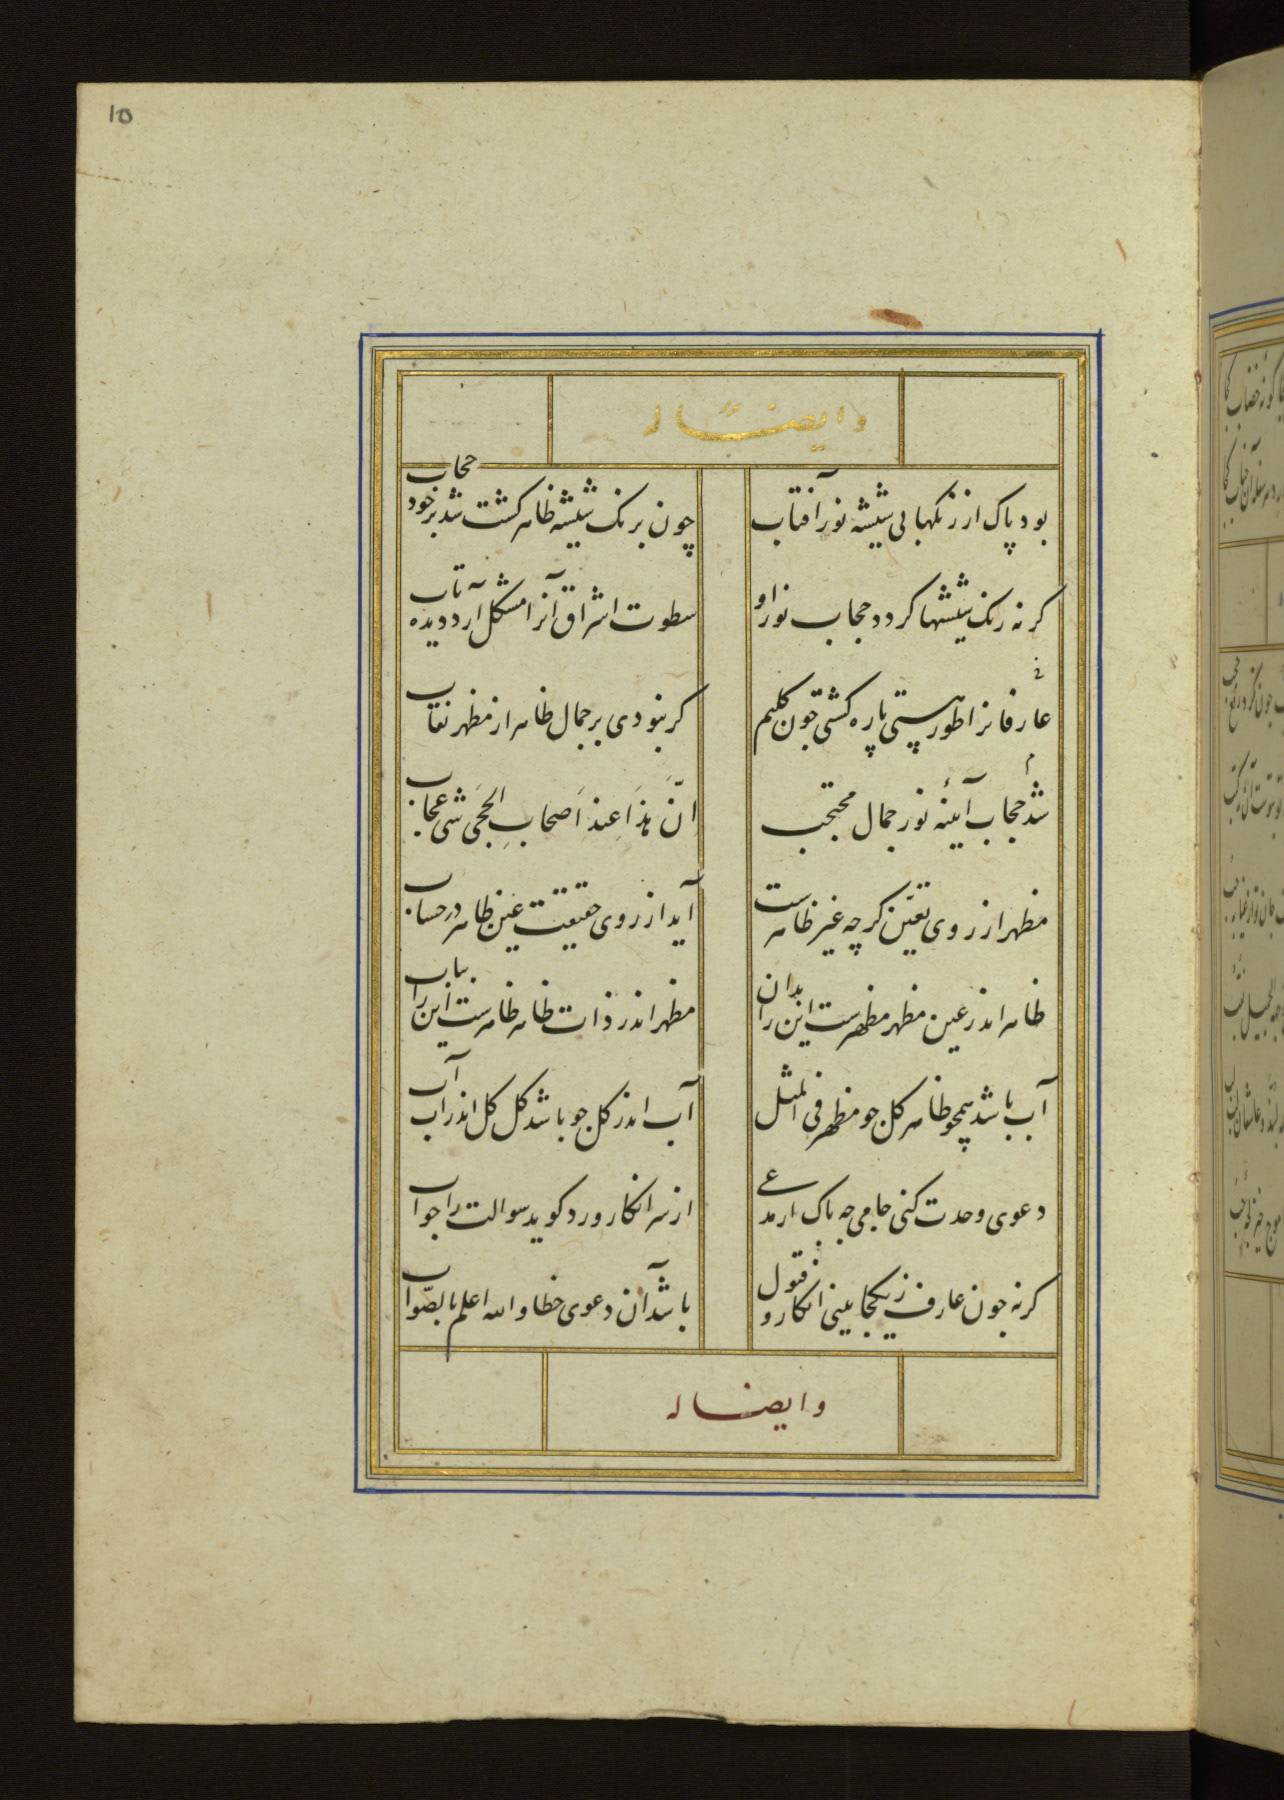 10
وایضا له
بود پاک از رنکهابی شیشه نور آفتاب
چون برنک شیشه ظاهر کشت شد بر خود حجاب
کر نه رنک شیشها کردد حجاب نور او
سطوت اشراق آنرا مشکل آرد دیده تاب
عارفانرا طور هستی پاره کشتی چون کلیم
کر نبودی بر جمال ظاهر از مظهر نقاب
شد حجاب آیینه نور جمال محتجب
انّ هذَا عند اَصحابِ الحجَی شی عجاب
مظهر از روی تعیّن کرچه غیر ظاهرست
آید از روی حقیقت عین ظاهر در حساب
ظاهر اندر عین مظهر مظهرست این را بدان
مظهر اندر ذات ظاهر ظاهرست این را بیاب
آب باشد همچو ظاهر کل جو مظهر فی المثل
آب اندر کل جو باشد کل کل اندر آب آب
دعوی وحدت کنی جامی چه باک ار مدعی
از سر انکار ورد کوید سوالت را جواب
کرنه جون عارف زیکجا بینی انکار و قبول
باشد آن دعوی خطا والله اعلم بالصّواب
وایضا له